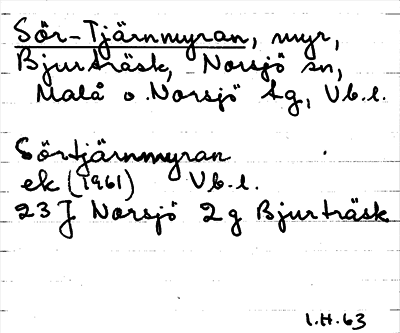 Sör-Tjärnmyran, myr,
Bjurträsk, Norsjö sn,
Malå o. Norsjö tg, Vb.l.
Sörtjärnmyran
ek (1961) Vb.l.
23 J Norsjö 2 g Bjurträsk
I.H.63